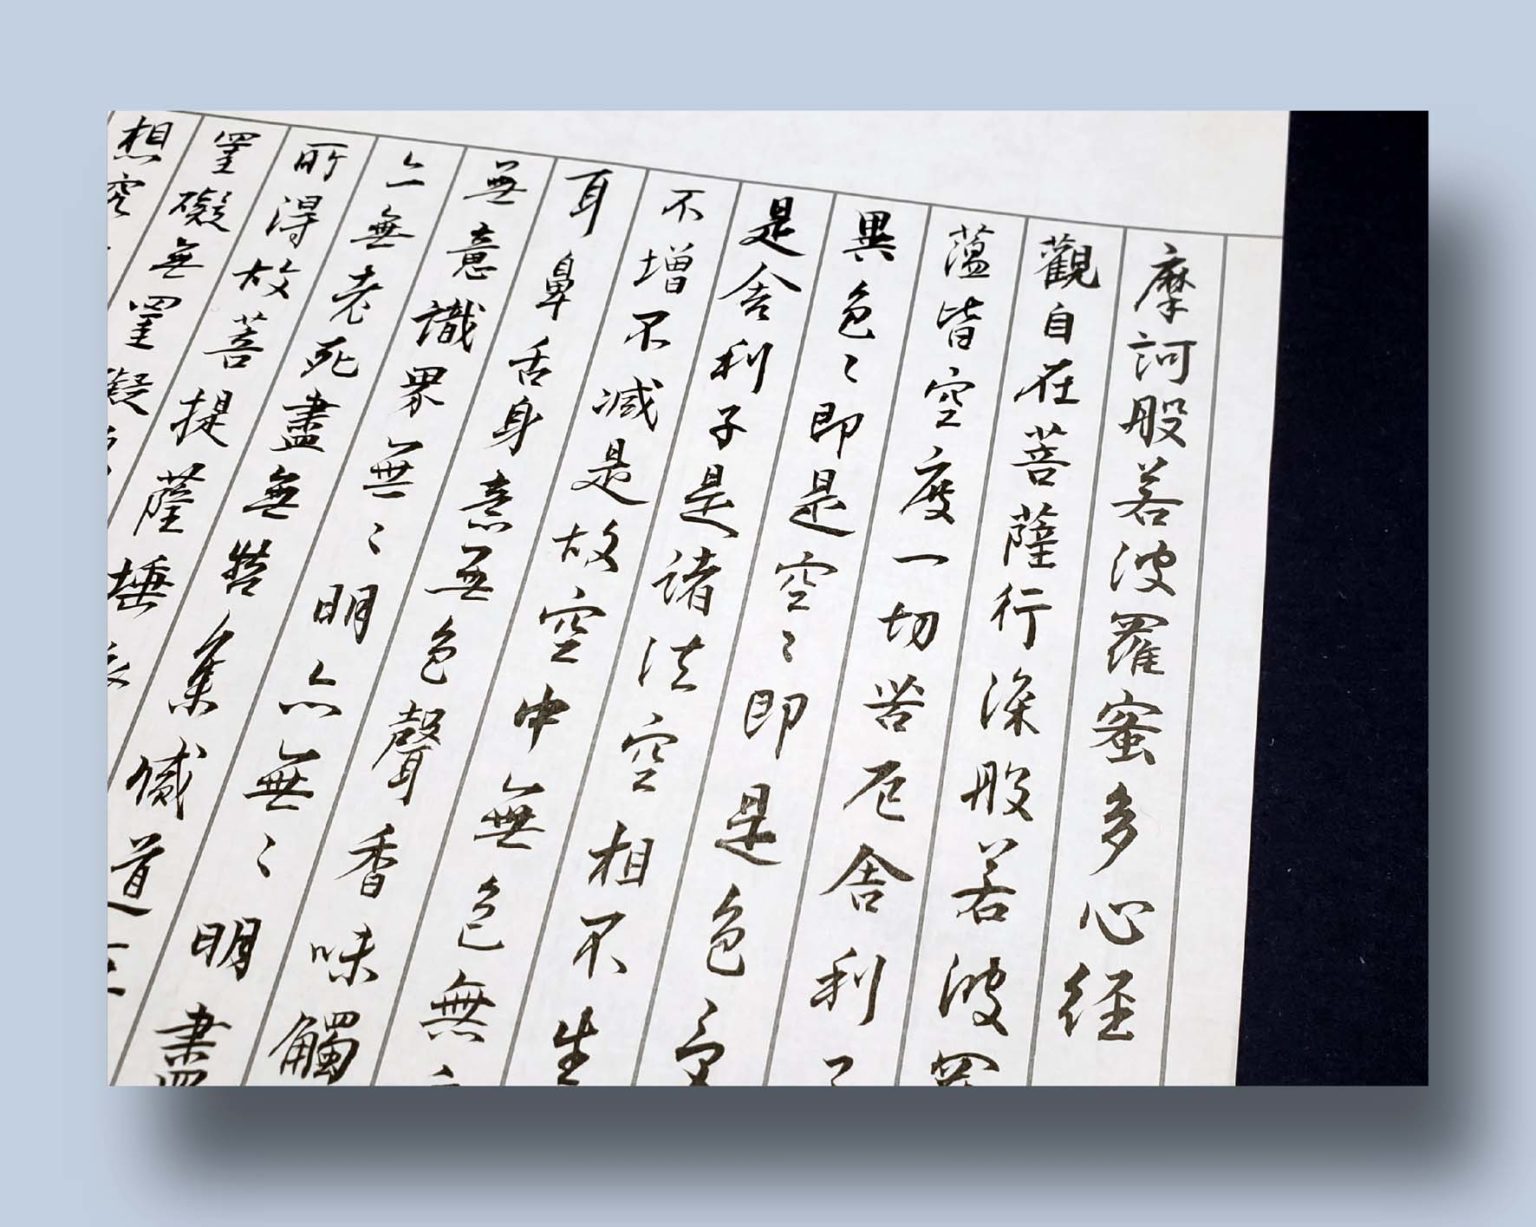 摩訶般若波羅蜜多心経
觀自在菩薩行深般若波羅
薀皆空度一切苦厄舍利
異色〻即是空〻即是色受
是舍利子是諸法空相不生
不增不減是故空中無色無
耳鼻舌身意無色聲香味觸
無意識界無〻明亦無〻明盡
亦無老死盡無苦集滅道
所得故菩提薩埵
罣礙無罣礙
想究